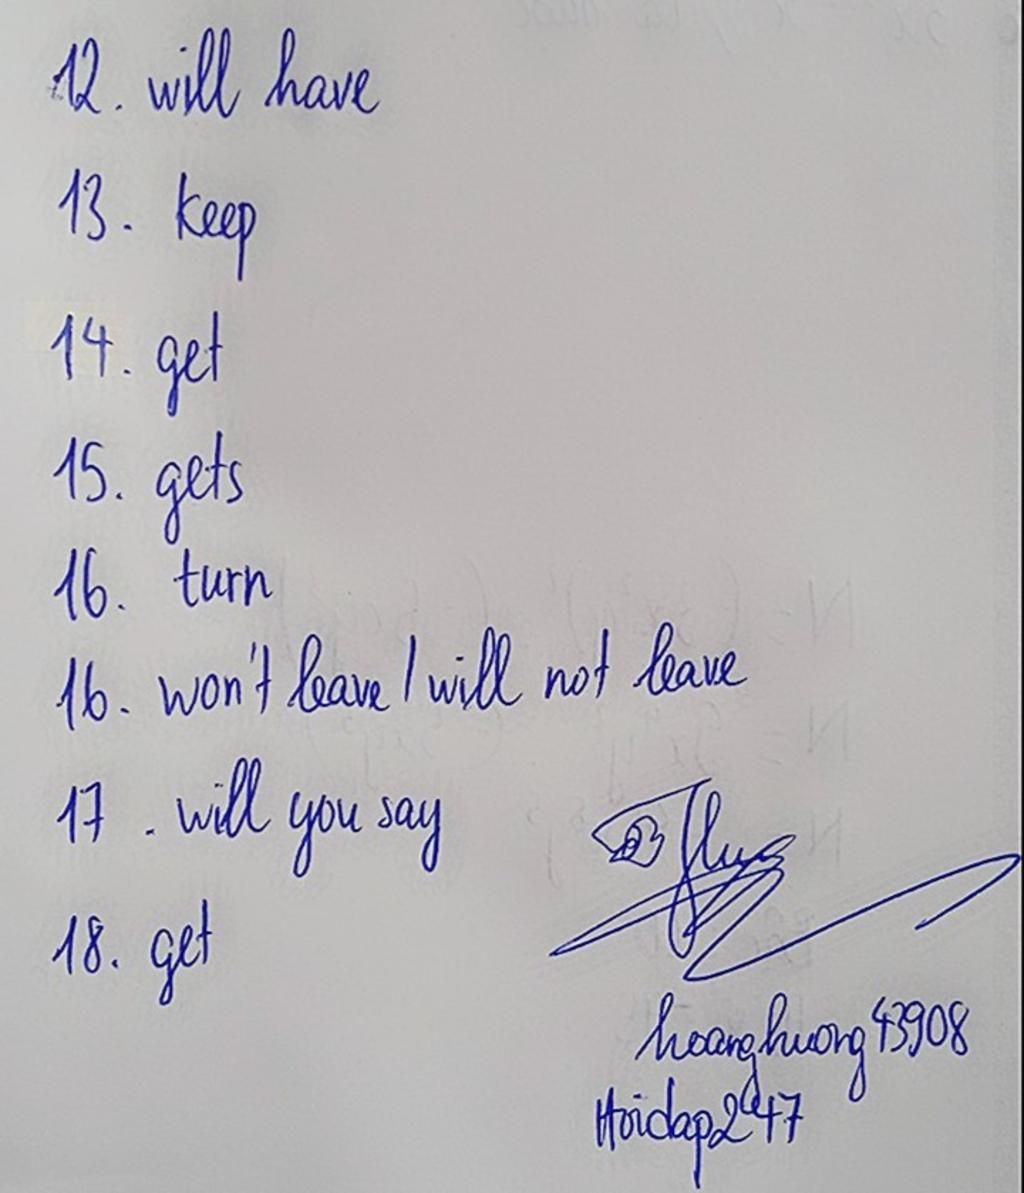 12. will have
13. keep
14. get
15. gets
16. turn
16. won't leave / will not leave
17. will you say
18. get
hoanghuong43908
Hoidap247